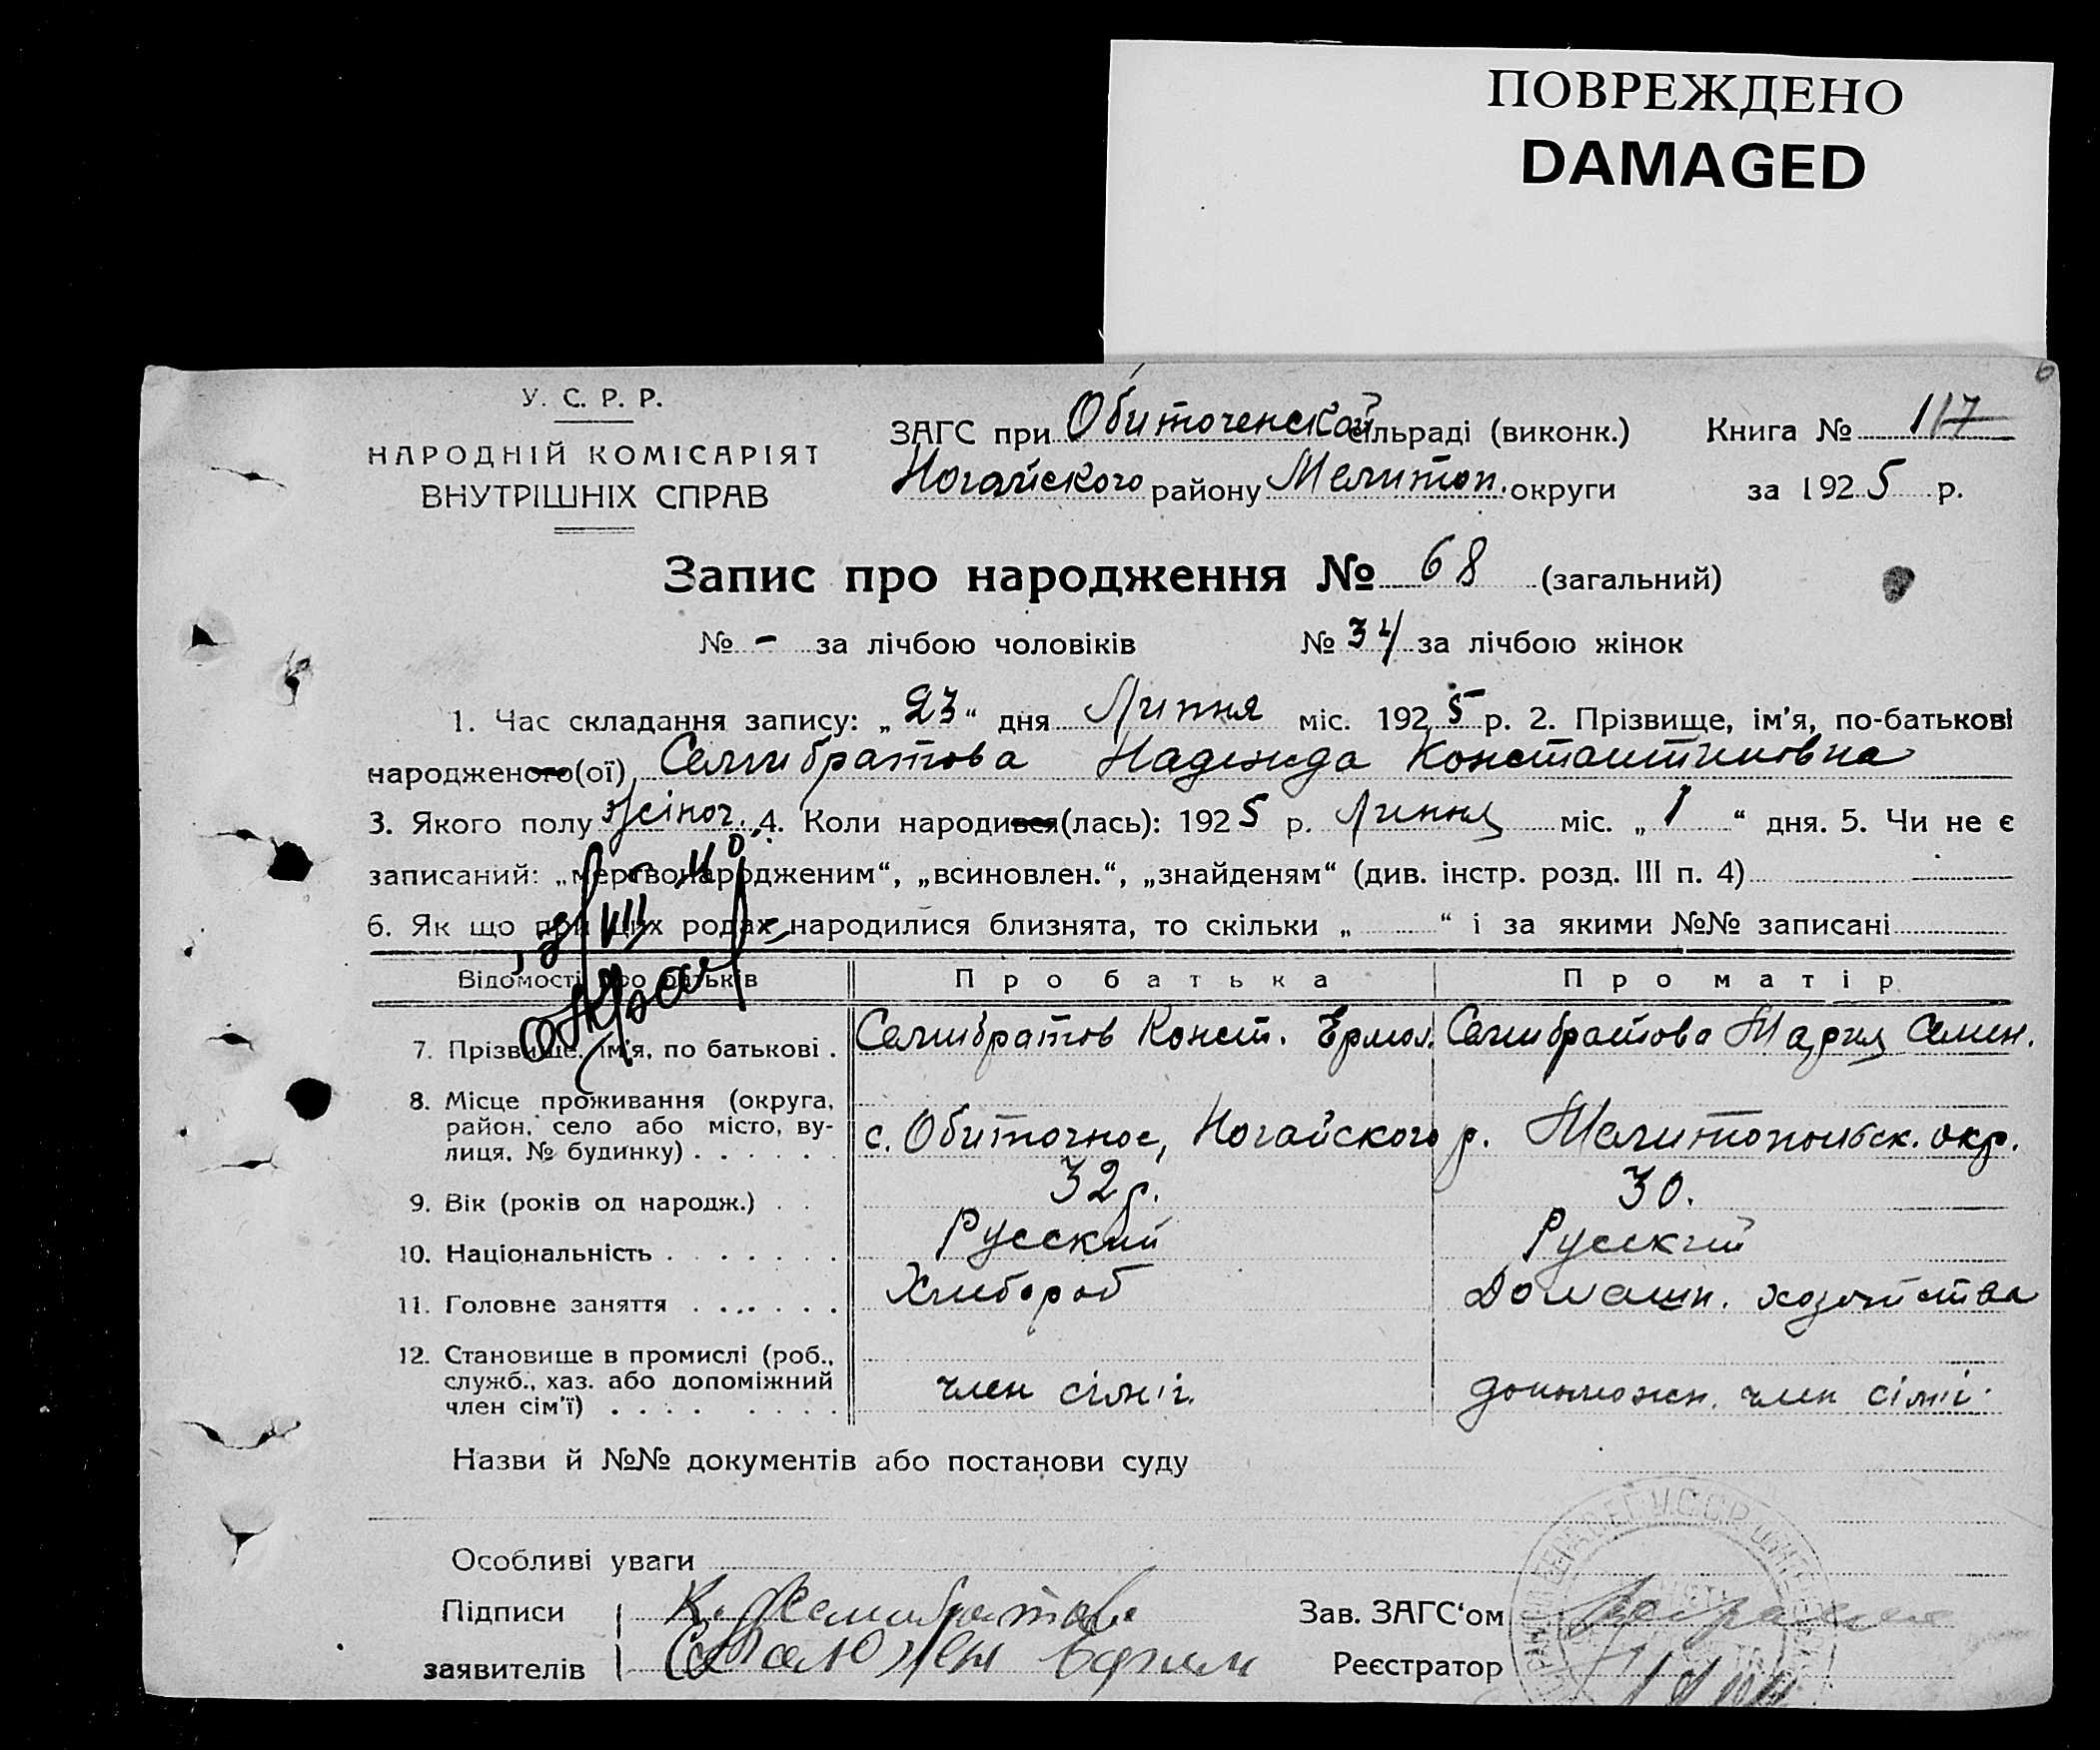 ПОВРЕЖДЕНО
DAMAGED
У. С. Р. Р.
НАРОДНІЙ КОМІСАРІЯТ
ВНУТРІШНІХ СПРАВ
ЗАГС при Обиточенской сільраді (виконк.)
Ногайского району Мелитоп. округи
Книга № 117
за 1925 р.
Запис про народження № 68 (загальний)
№ - за лічбою чоловіків № 34 за лічбою жінок
1. Час складання запису: „23“ дня Липня міс. 1925 р. 2. Прізвище, ім’я, по-батькові
народженого(ої) Семибратова Надежда Константиновна
3. Якого полу жіноч. 4. Коли народився(лась): 1925 р. Липня міс. „1“ дня. 5. Чи не є
записаний: „мертвонародженим“, „всиновлен.“, „знайденям“ (див. інстр. розд. III п. 4)
6. Як що при цих родах народилися близнята, то скільки „ “ і за якими №№ записані
Відомості про батьків Про батька Про матір
7. Прізвище, ім’я, по батькові . Семибратов Конст. Ермол. Семибратова Мария Семен.
8. Місце проживання (округа,
район, село або місто, ву-
лиця, № будинку) . . . . . . с. Обиточное, Ногайского р. Мелитопольск. окр.
9. Вік (років од народж.) . . 32 р. 30.
10. Національність . . . . . . . Русский Русский
11. Головне заняття . . . . . . Хлибороб Домашн. хозяйства
12. Становище в промислі (роб.,
служб., хаз. або допоміжний
член сім’ї) . . . . . . . . член сімїі допоможн. член сімїі
Назви й №№ документів або постанови суду
Особливі уваги
Підписи К. Семибратов Зав. ЗАГС‘ом
заявителів Реєстратор